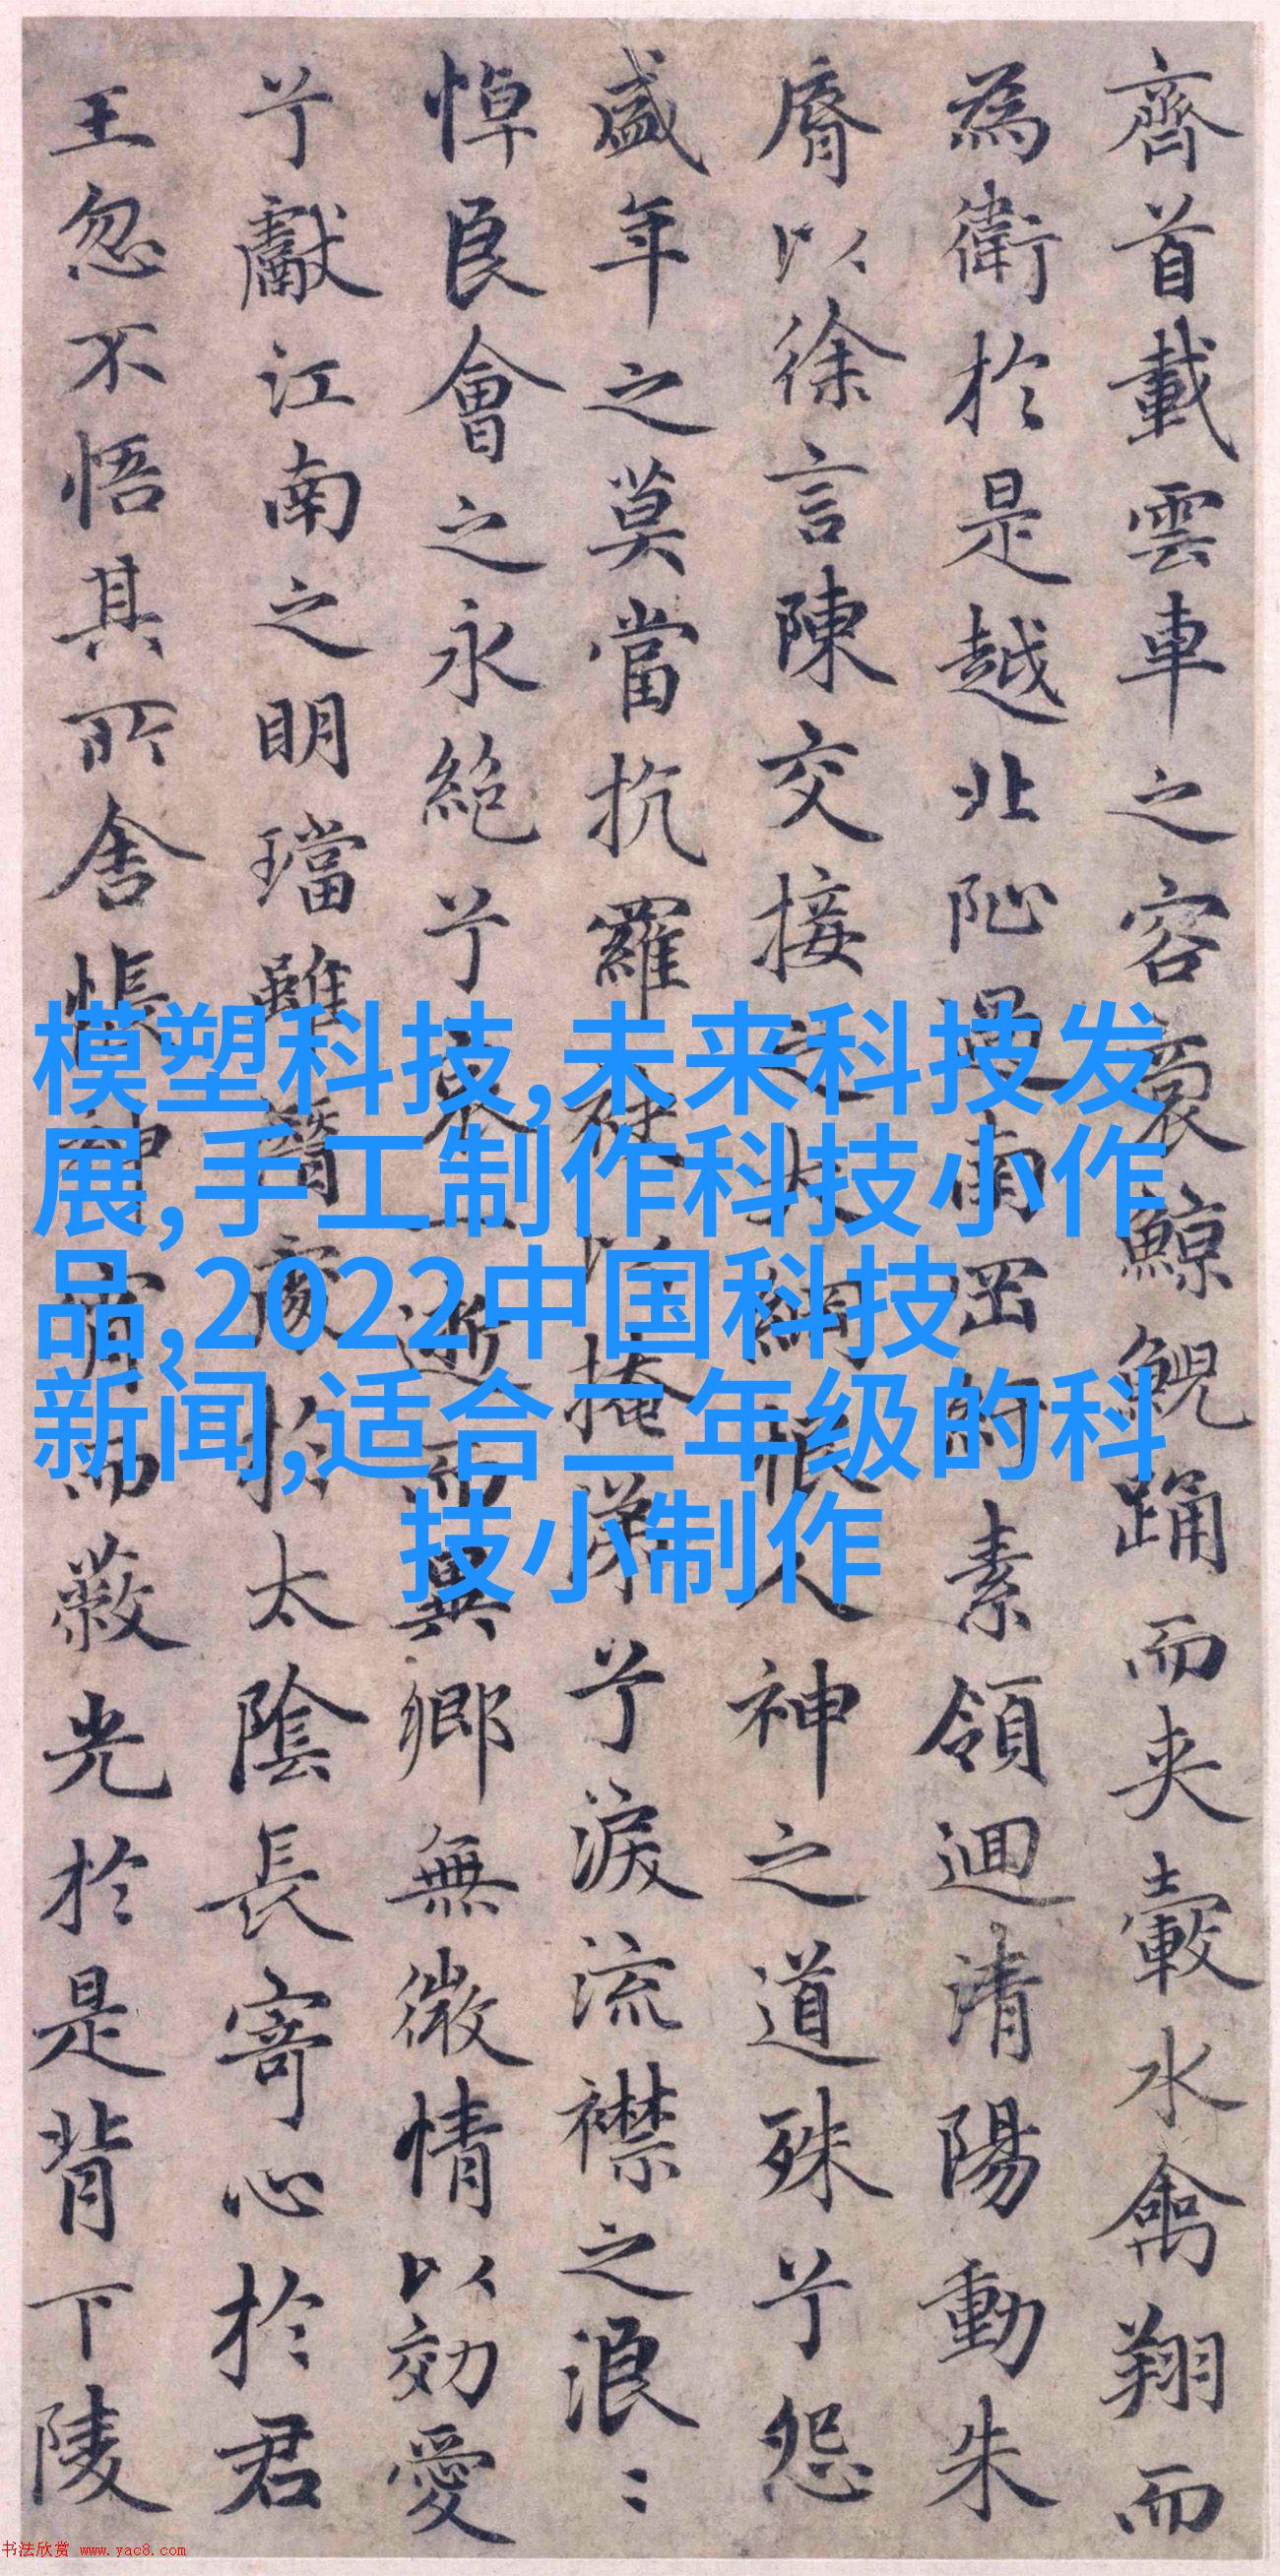 齊首載雲車之容裔鯨鯢踊而夾轂水禽翔而
為衛於是越北沚過南岡紆素領迴清陽動朱
脣以徐言陳交接之大綱恨人神之道殊兮怨
盛年之莫當抗羅袂以掩涕兮淚流襟之浪〻
悼良會之永絕兮哀一逝而異鄉無微情以効愛
兮獻江南之明璫雖潛處於太陰長寄心於君
王忽不悟其所舍悵神宵而蔽光於是背下陵
模塑科技,未来科技发
展,手工制作科技小作
品,2022中国科技
新闻,适合二年级的科
技小制作
书法欣赏 www.yac8.com